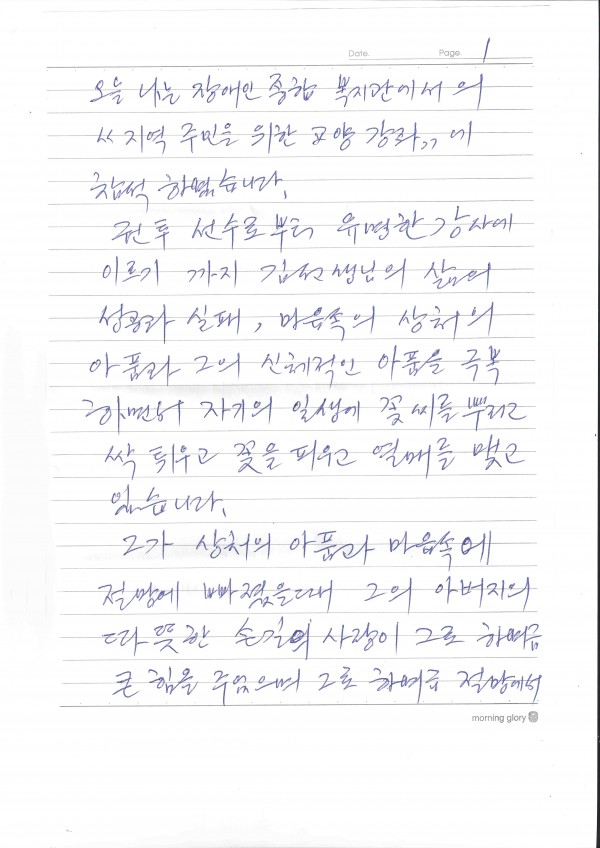 Date. Page. 1
오늘 나는 장애인 종합 복지관에서의
"지역 주민을 위한 교양 강좌" 에
참석 하였습니다.
권투 선수로부터 유명한 강사에
이르기 까지 김선생님의 삶의
성공과 실패, 마음속의 상처의
아픔과 그의 신체적인 아픔을 극복
하면서 자기의 일생에 꽃씨를 뿌리고
싹 틔우고 꽃을 피우고 열매를 맺고
있습니다.
그가 상처의 아픔과 마음속에
절망에 빠졌을때 그의 아버지의
따뜻한 손길의 사랑이 그로 하여금
큰 힘을 주었으며 그로 하여금 절망에서
morning glory